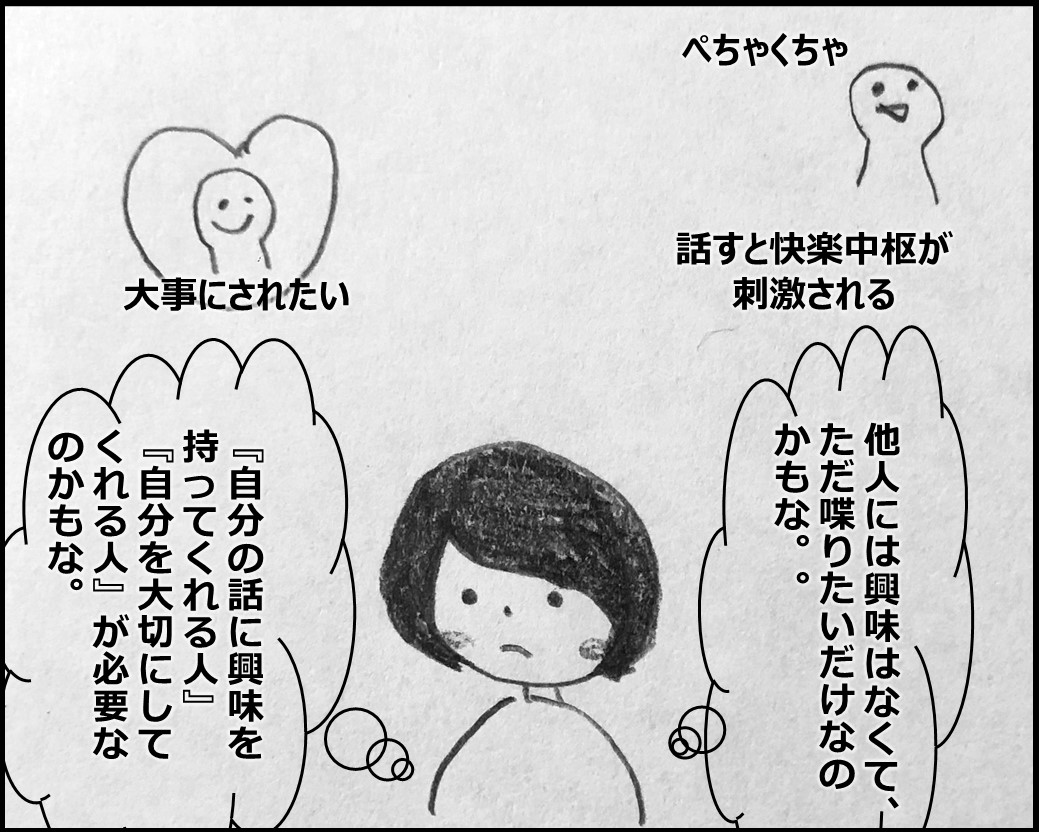 ぺちゃくちゃ
話すと快楽中枢が
刺激される
他人には興味はなくて、
ただ喋りたいだけなの
かもな。。
大事にされたい
『自分の話に興味を
持ってくれる人』
『自分を大切にして
くれる人』が必要な
のかもな。